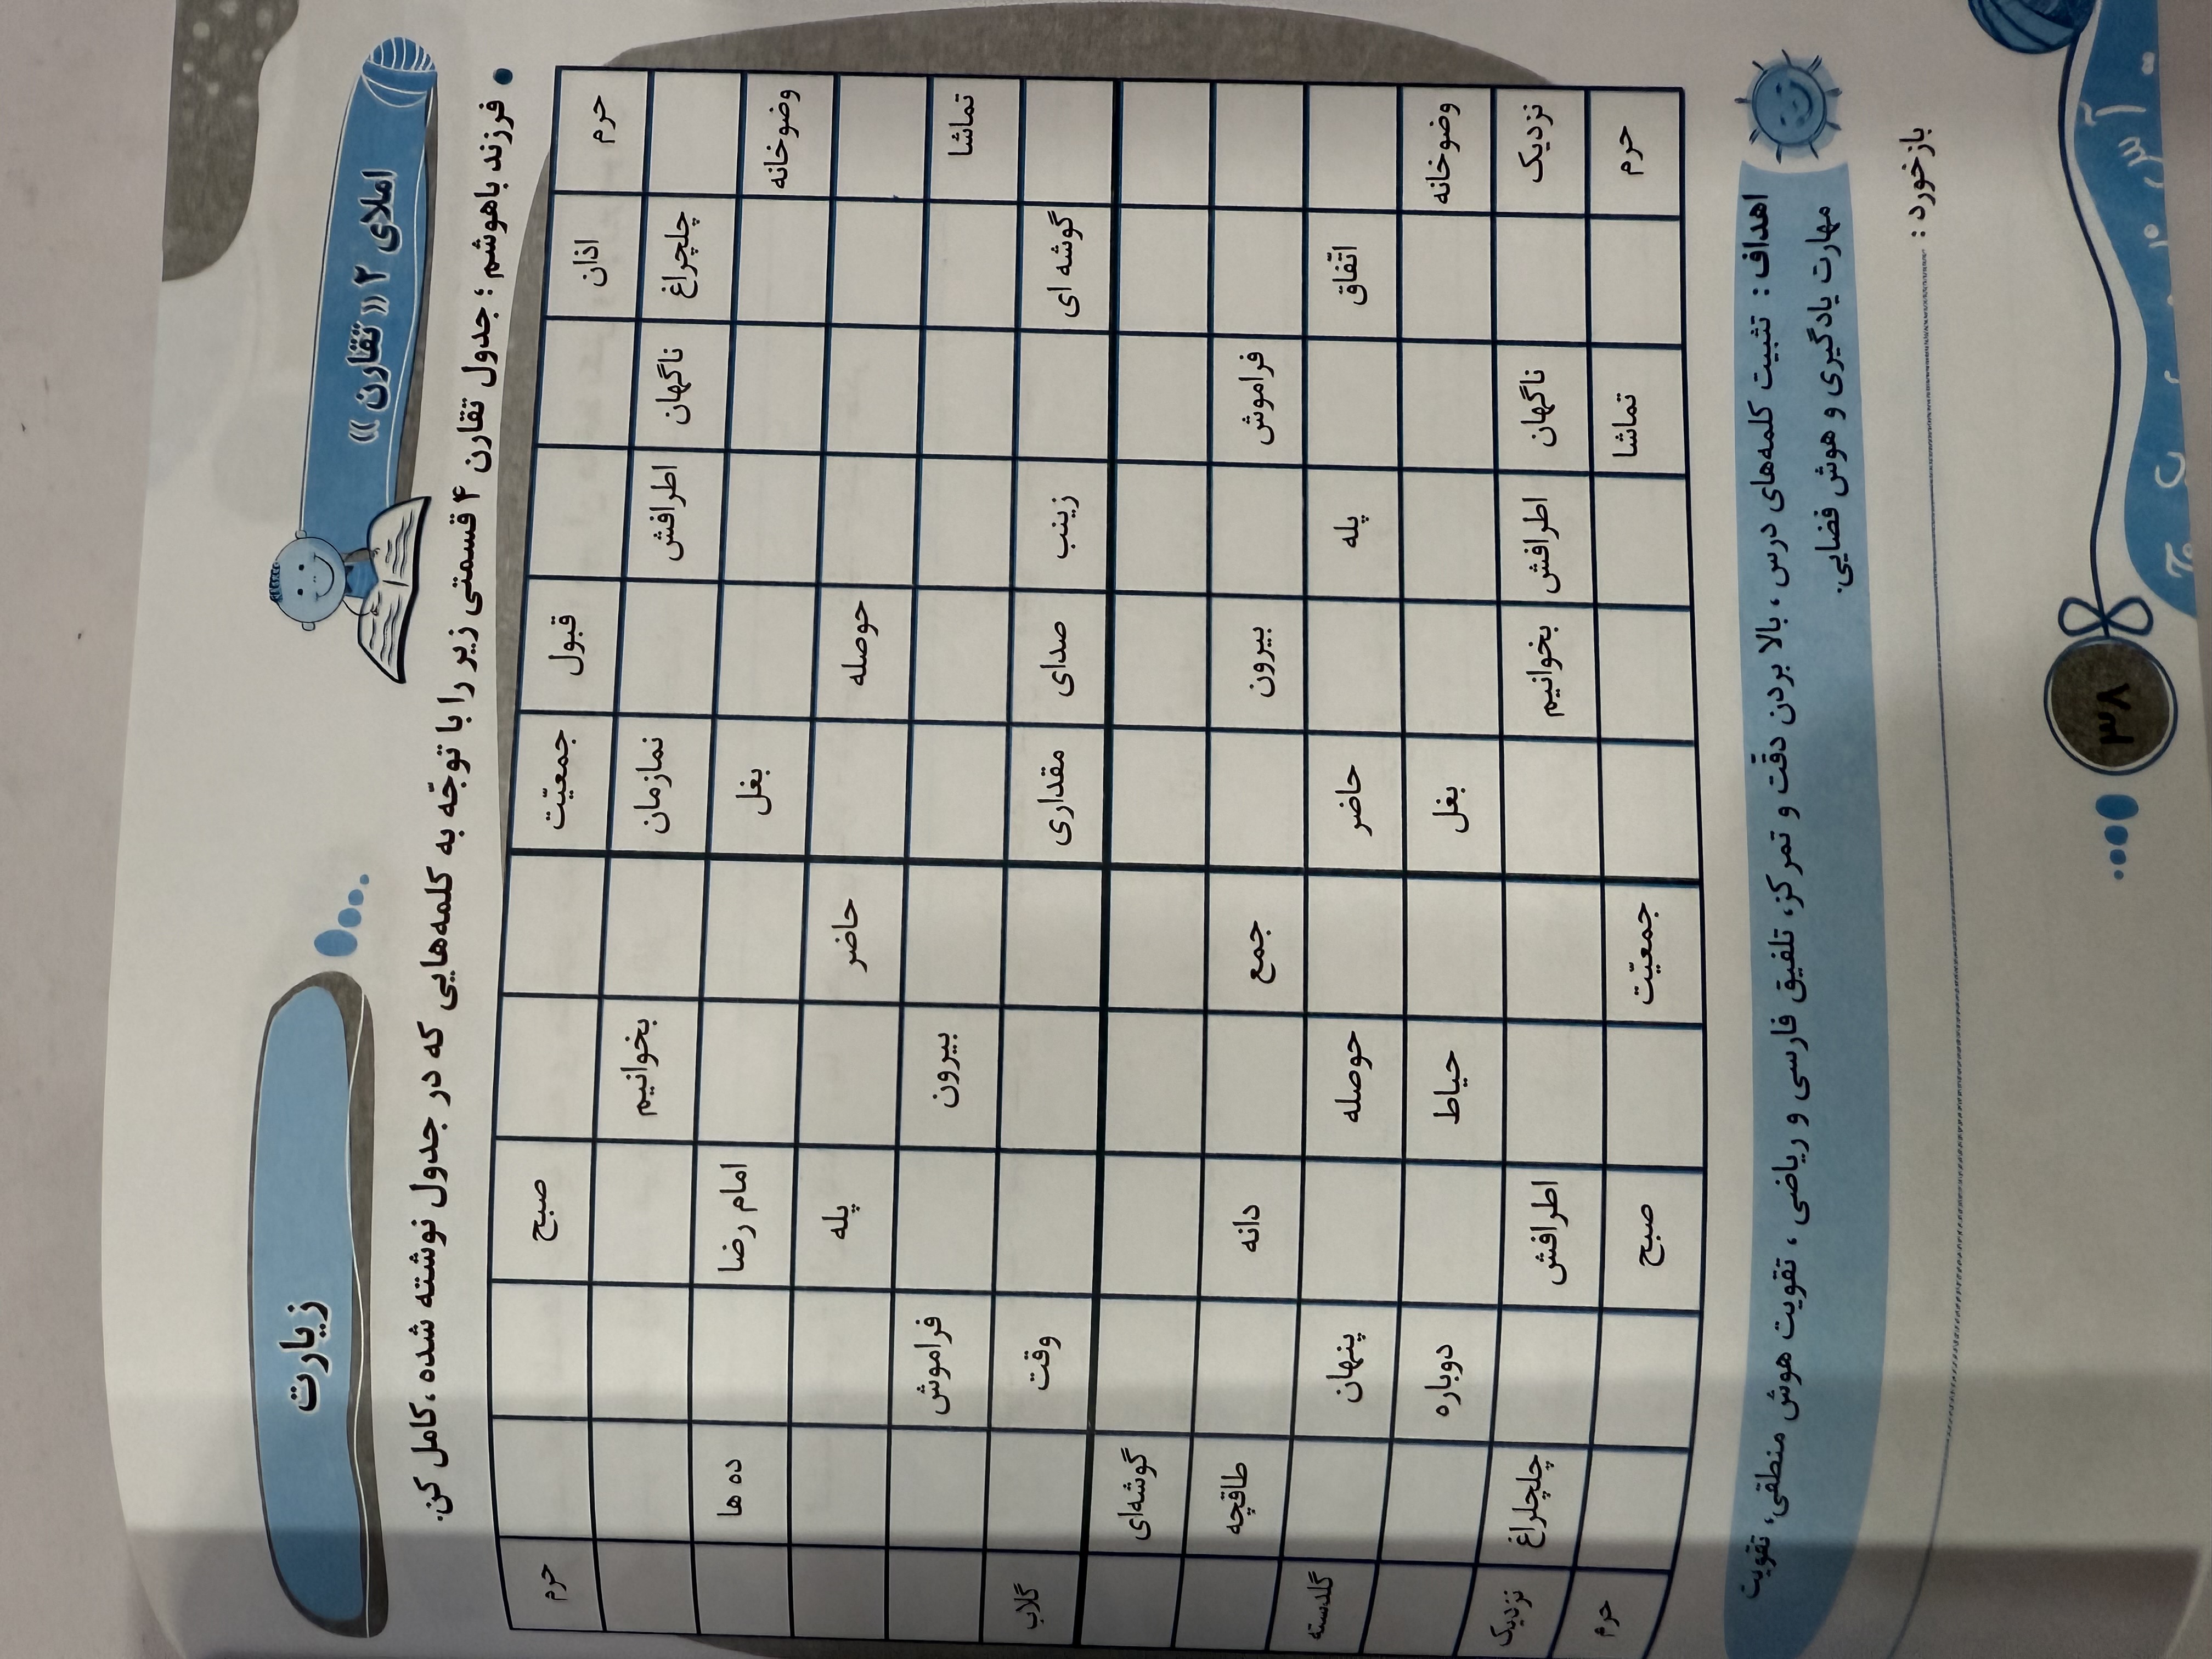 املای ۲ «تقارن»
زیارت
فرزند باهوشم ؛ جدول تقارن ۴ قسمتی زیر را با توجّه به کلمه‌هایی که در جدول نوشته شده ، کامل کن.
حرم اذان قبول جمعیّت صبح حرم
چلچراغ ناگهان اطرافش نمازمان بخوانیم
وضوخانه بغل امام رضا ده ها
حوصله حاضر پله
تماشا بیرون فراموش
گوشه ای زینب صدای مقداری وقت گلاب
گوشه‌ای
فراموش بیرون جمع دانه طاقچه
اتّفاق پله حاضر حوصله پنهان گلدسته
وضوخانه بغل حیاط دوباره
نزدیک ناگهان اطرافش بخوانیم اطرافش چلچراغ نزدیک
حرم تماشا جمعیّت صبح حرم
اهداف : تثبیت کلمه‌های درس ، بالا بردن دقّت و تمرکز، تلفیق فارسی و ریاضی ، تقویت هوش منطقی، تقویت
مهارت یادگیری و هوش فضایی.
بازخورد :
۳۸